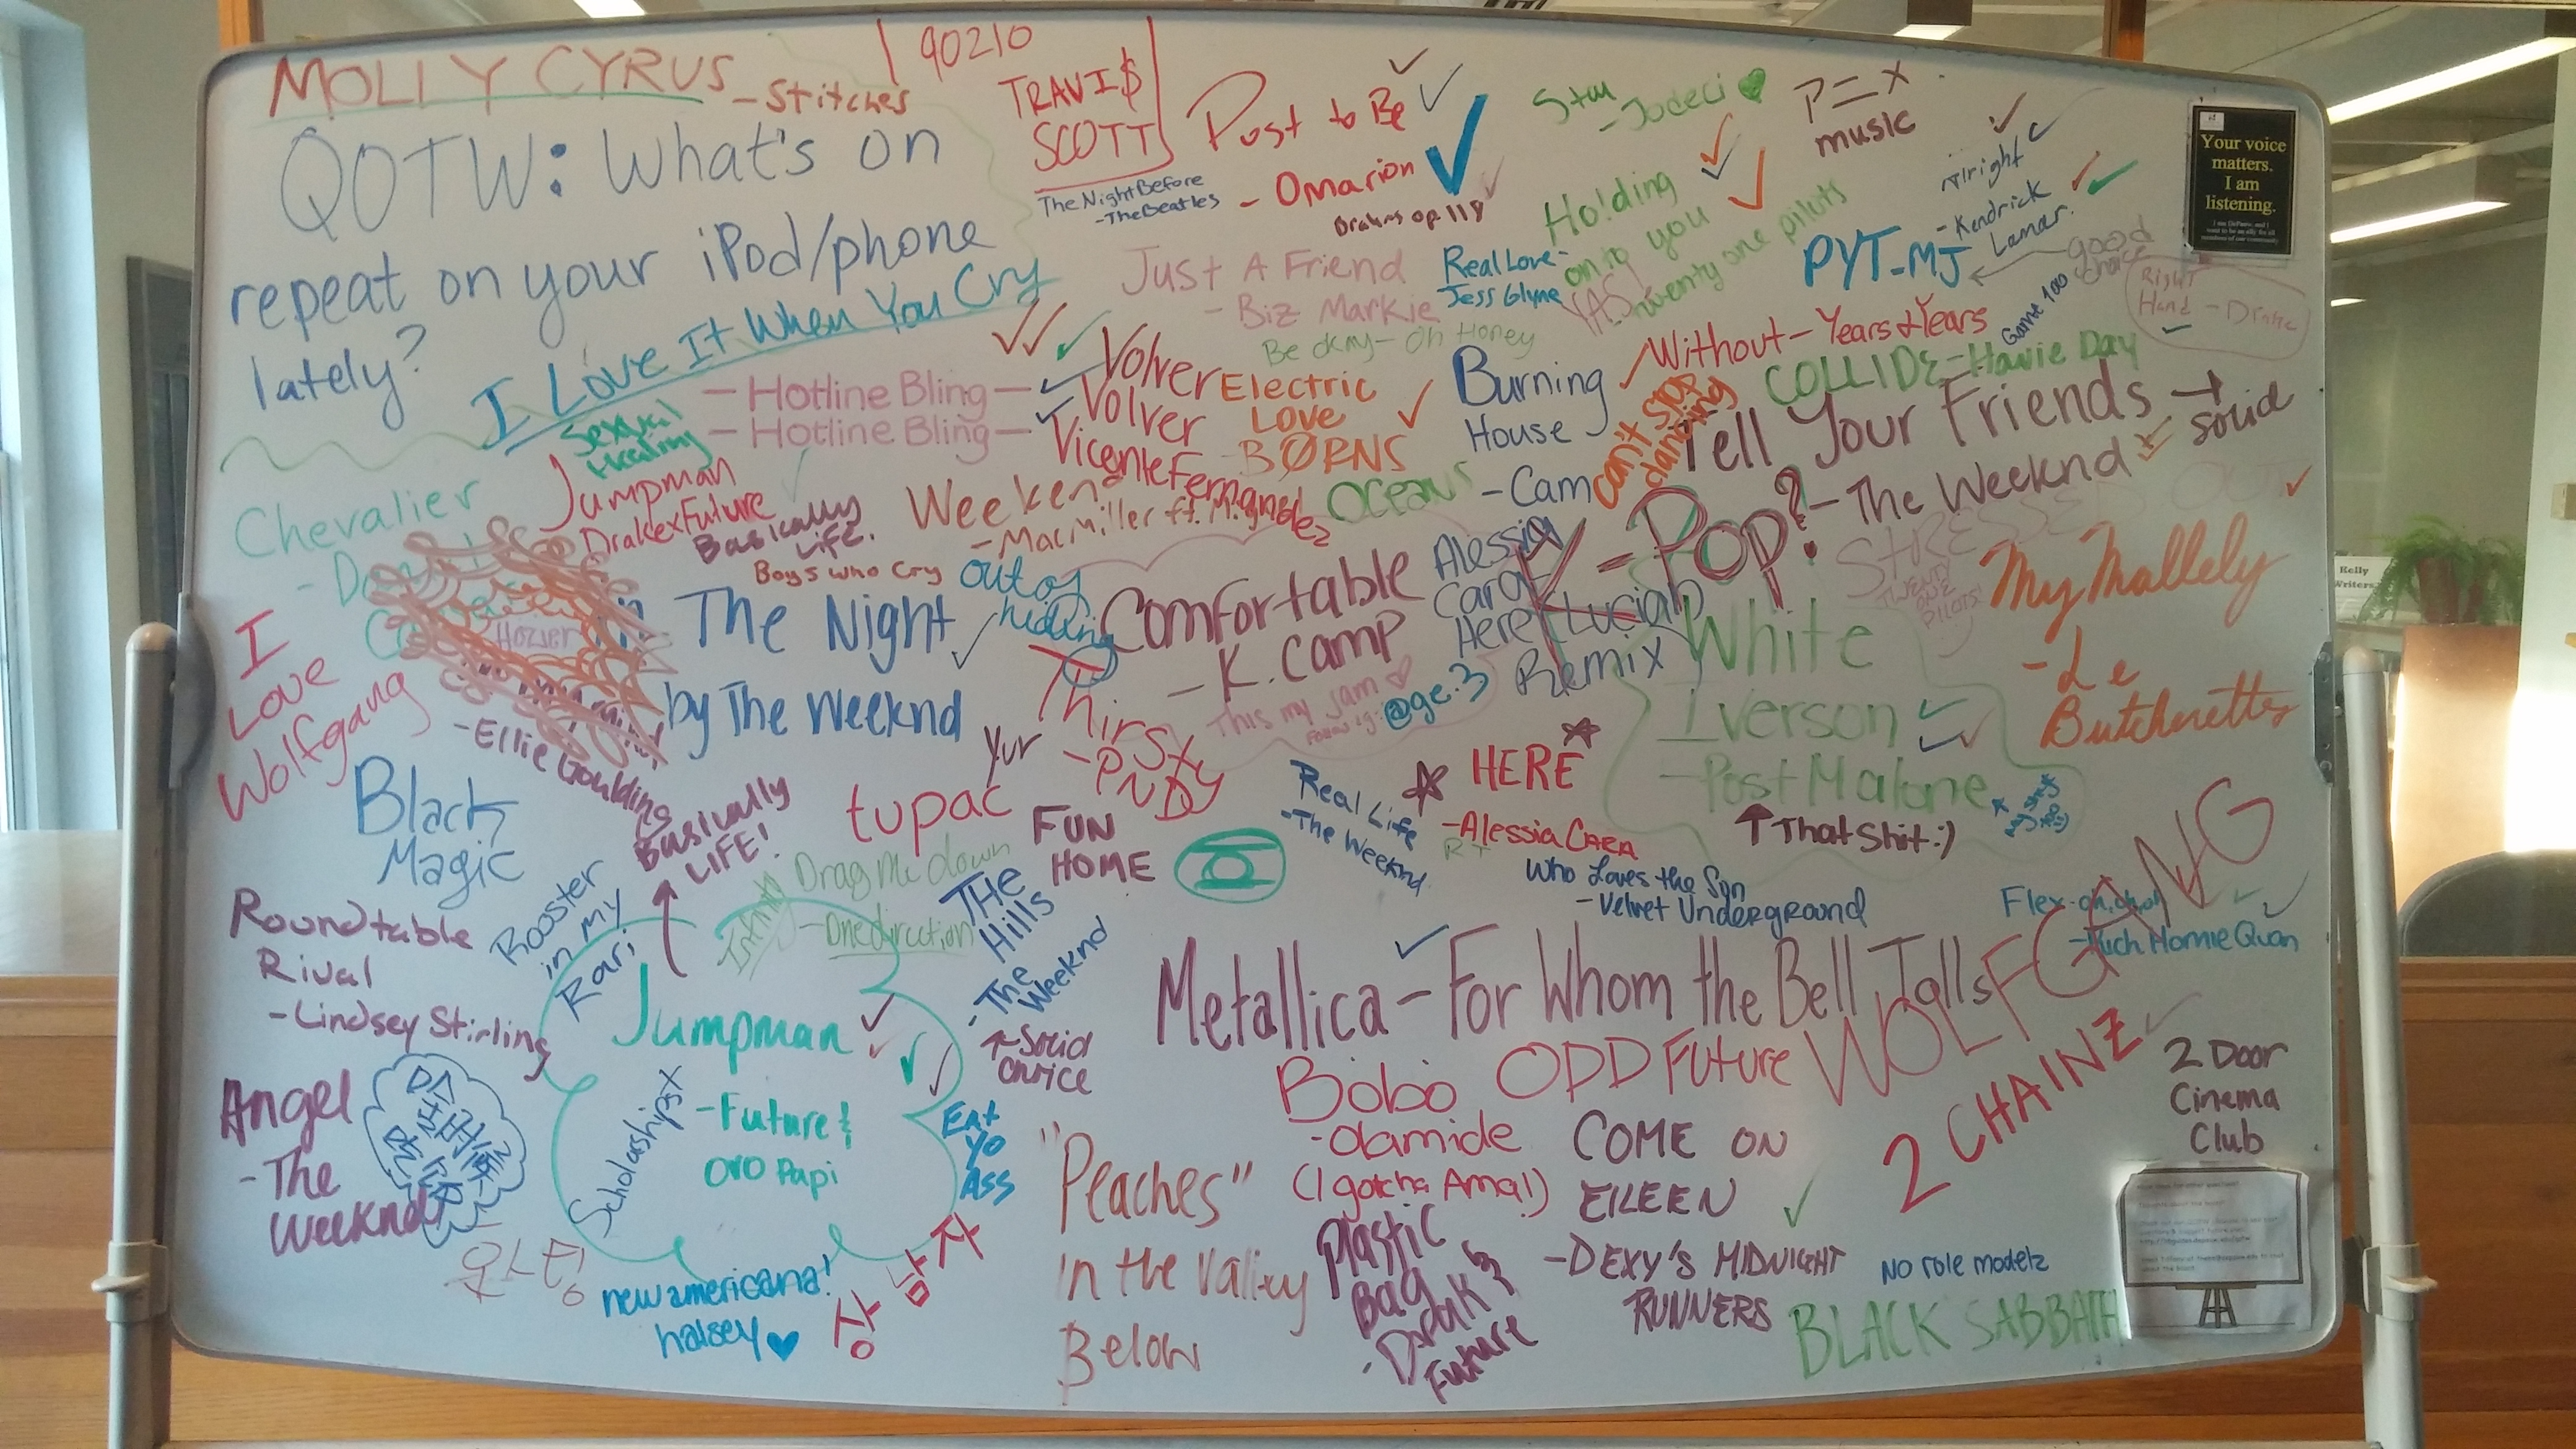 MOLLY CYRUS
- Stitches
90210
TRAVI$
SCOTT
QOTW: What's on
repeat on your iPod/phone
lately?
The Night Before
- The Beatles
Post to Be
- Omarion
Brahms op 118
Stay
- Jodeci
P=X
music
Alright
- Kendrick
Lamar.
Your voice
matters.
I am
listening.
Holding
on to you
twenty one pilots
YAS
PYT-MJ
good
choice
Game 100
Right
Hand - Drake
I Love It When You Cry
Just A Friend
- Biz Markie
Real Love-
Jess Glyne
Be okay - Oh Honey
Without - Years & Years
COLLIDE - Howie Day
- Hotline Bling -
- Hotline Bling -
Volver
Volver
Vicente Fernandez
Electric
Love
BØRNS
Burning
House
- Cam
can't stop
dancing
Tell Your Friends → solid
- The Weeknd
Sexual
Healing
Jumpman
Drake x Future
Basically
Life.
Boys who cry
Weekend
- Mac Miller ft. Miguel
Oceans
K-POP?
STRESSED OUT
TWENTY
ONE
PILOTS!
My Mallely
- Le
Butcherettes
Chevalier
Hozier
In The Night
by The Weeknd
out of
hiding
Comfortable
- K. Camp
This my jam
Follow ig: @ge.3
Alessia
Cara
Here (Lucian)
Remix
White
Iverson
- Post Malone
↑ That Shit :)
I
Love
Wolfgang
- Ellie Goulding
Basically
LIFE!
Black
Magic
Thirsty
- PND
yur
tupac
FUN
HOME
Real Life
- The Weeknd
HERE
- Alessia CARA
RT
Who Loves the Sun
- Velvet Underground
Flex - oh, oh, oh
- Rich Homie Quan
Roundtable
Rival
- Lindsey Stirling
Rooster
in my
Rari
Infinity
Drag Me down
- One direction
THe
Hills
- The
Weeknd
↑ Solid
choice
Metallica - For Whom the Bell Tolls
WOLFGANG
Jumpman
- Future &
OVO Papi
Scholarships
Eat
Yo
Ass
Angel
- The
Weeknd
Bobo
- Olamide
(I gotcha Ama!)
ODD Future
2 CHAINZ
2 Door
Cinema
Club
"Peaches"
In the Valley
Below
COME ON
EILEEN
- DEXY'S MIDNIGHT
RUNNERS
Plastic
Bag
- Drake &
Future
No role modelz
BLACK SABBATH
new americana!
halsey
상남자
Kelly
Writers